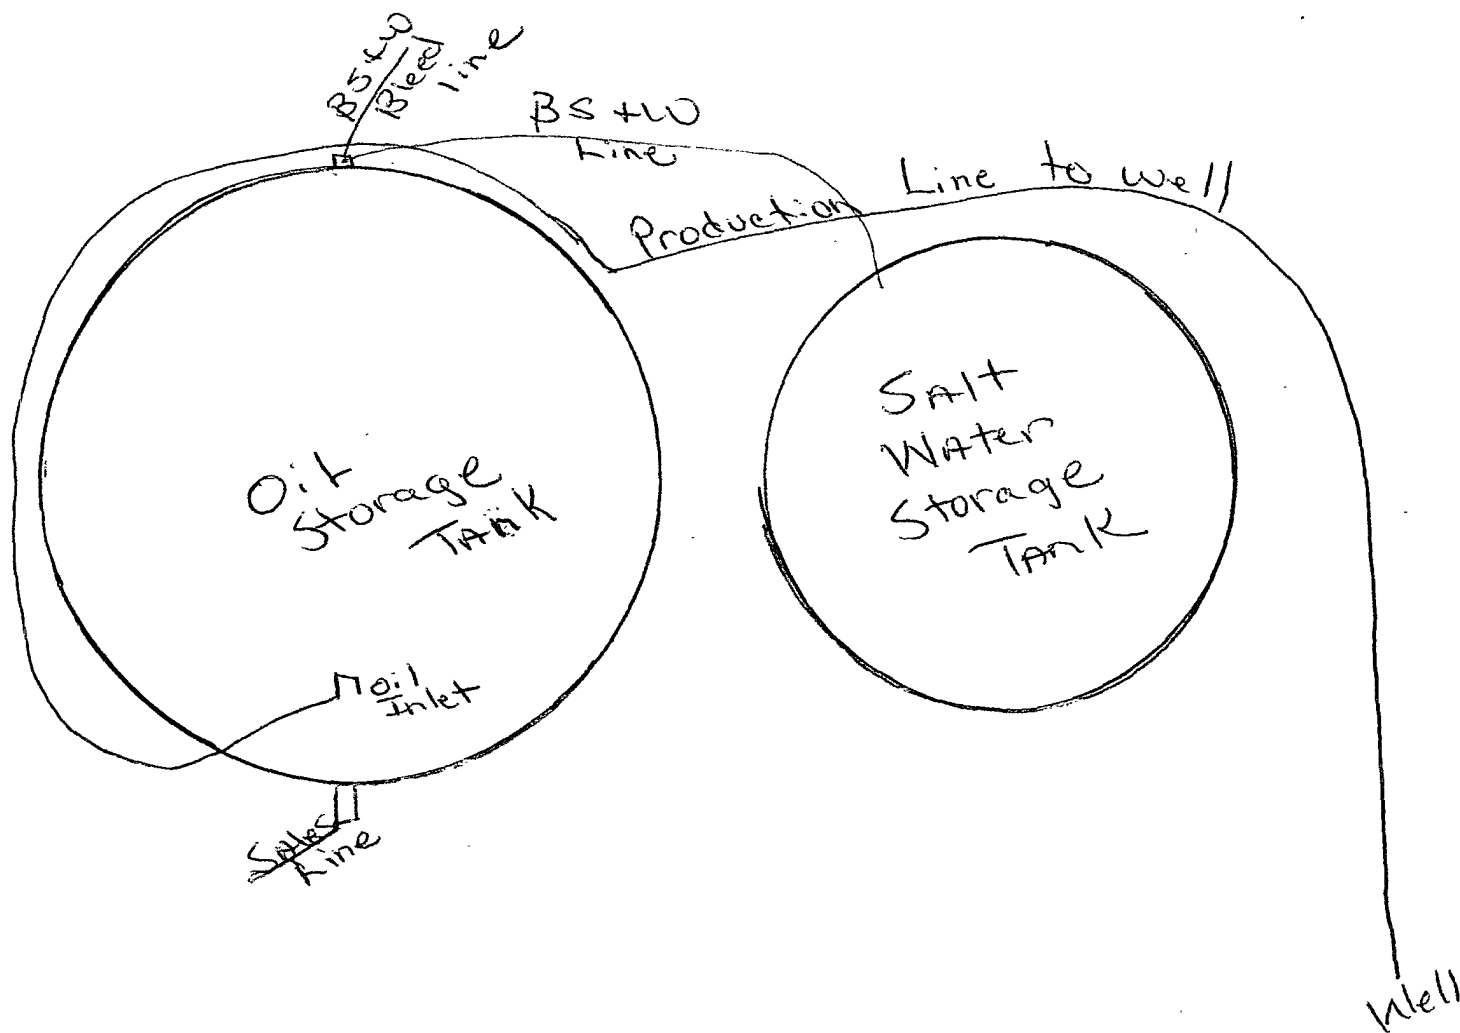 BS+W
Bleed
line
BS+W
Line
Production Line to well
Oil
Storage
Tank
Salt
Water
Storage
Tank
Oil
Inlet
Sales
Line
Well